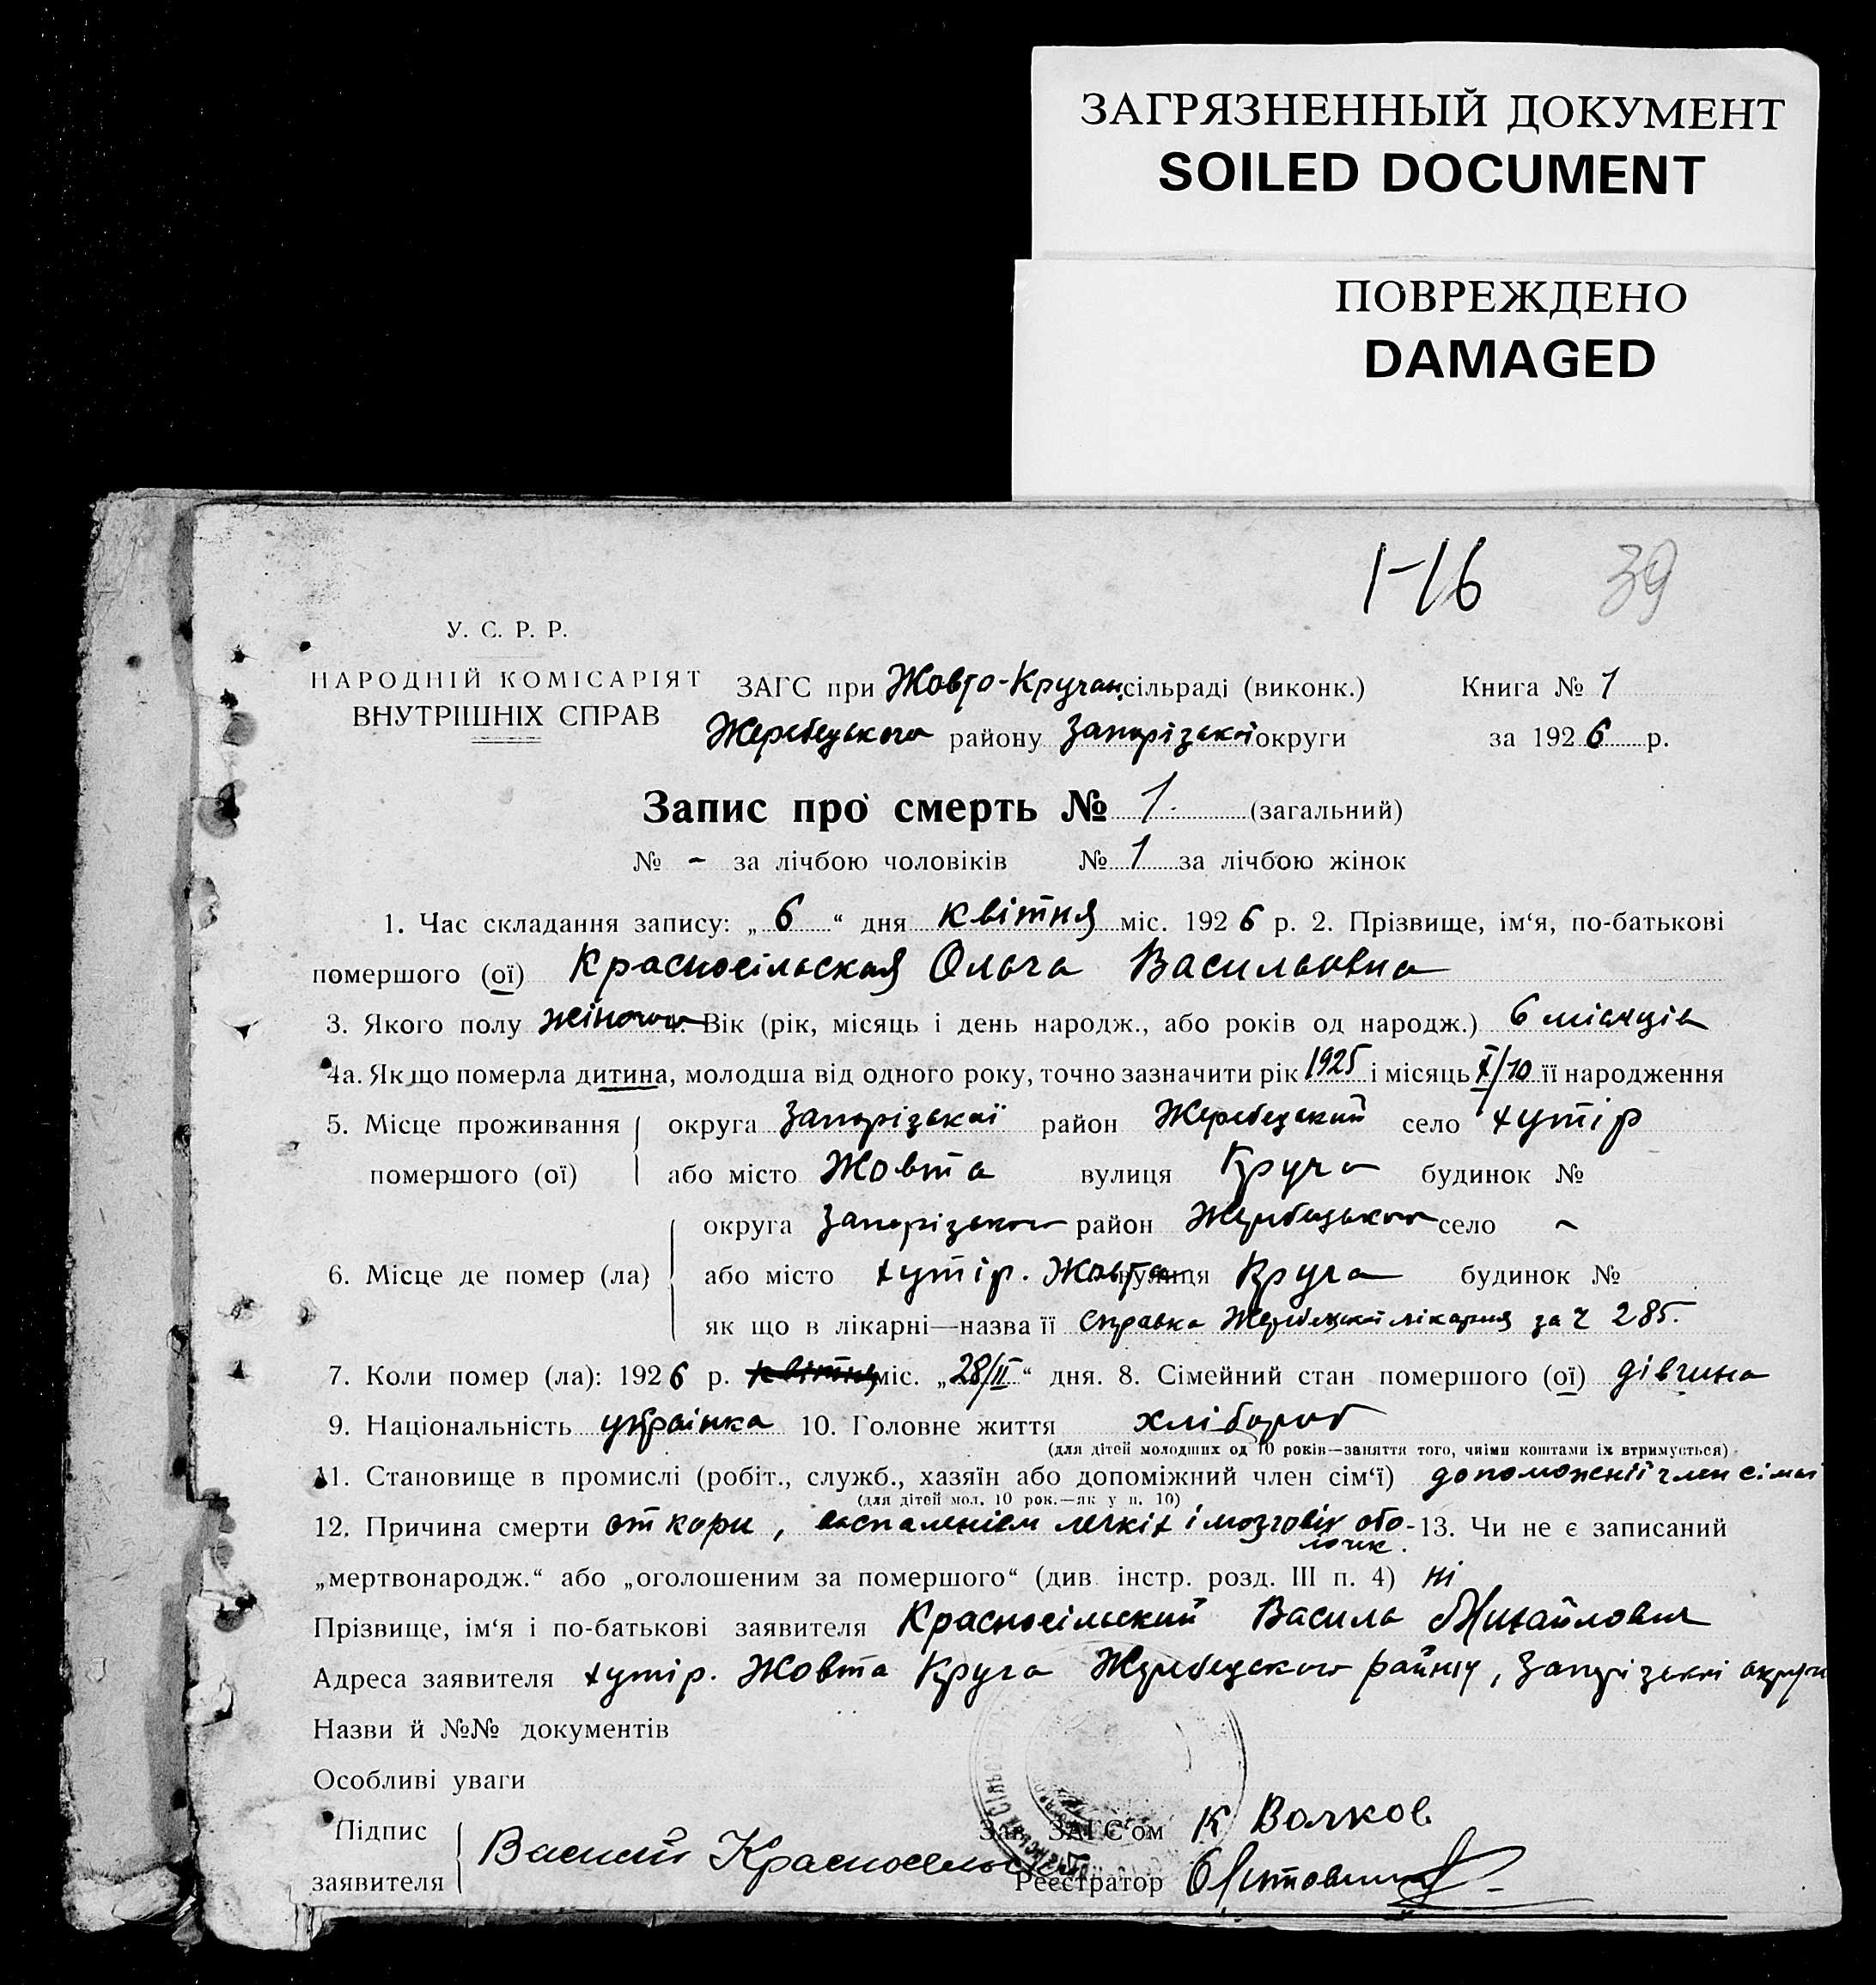 ЗАГРЯЗНЕННЫЙ ДОКУМЕНТ
SOILED DOCUMENT
ПОВРЕЖДЕНО
DAMAGED
1-16 39
У. С. Р. Р.
НАРОДНІЙ КОМІСАРІЯТ
ВНУТРІШНІХ СПРАВ
ЗАГС при Жовто-Кручан. сільраді (виконк.) Книга № 1
Жеребецького району Запорізької округи за 1926 р.
Запис про смерть № 1. (загальний)
№ - за лічбою чоловіків № 1 за лічбою жінок
1. Час складання запису: „6“ дня квітня міс. 1926 р. 2. Прізвище, ім‘я, по-батькові
помершого (ої) Красносільская Ольга Васильовна
3. Якого полу жіночого Вік (рік, місяць і день народж., або років од народж.) 6 місяців
4а. Як що померла дитина, молодша від одного року, точно зазначити рік 1925 і місяць X/10 її народження
5. Місце проживання помершого (ої) округа Запорізької район Жеребецький село хутір
або місто Жовта вулиця Круча будинок №
6. Місце де помер (ла) округа Запорізького район Жеребецького село -
або місто хутір. Жовта вулиця Круча будинок №
як що в лікарні—назва її Справка Жеребецкої лікарня за ч 285.
7. Коли помер (ла): 1926 р. квітня міс. „28/II“ дня. 8. Сімейний стан помершого (ої) дівчина
9. Національність українка 10. Головне життя хлібороб
(для дітей молодших од 10 років—заняття того, чиїми коштами їх втримується)
11. Становище в промислі (робіт., служб., хазяїн або допоміжний член сім‘ї) допоможнії член сімьї
(для дітей мол. 10 рок.—як у п. 10)
12. Причина смерти от кори, воспаленієм легкіх і мозговіх оболочик. 13. Чи не є записаний
„мертвонародж.“ або „оголошеним за помершого“ (див. інстр. розд. III п. 4) ні
Прізвище, ім‘я і по-батькові заявителя Красносільский Василь Михайлович
Адреса заявителя хутір. Жовта Круча Жеребецского району, Запорізької округи
Назви й №№ документів
Особливі уваги
Підпис заявителя Василий Красносельский
Зав. ЗАГС‘ом К Волков
Реєстратор